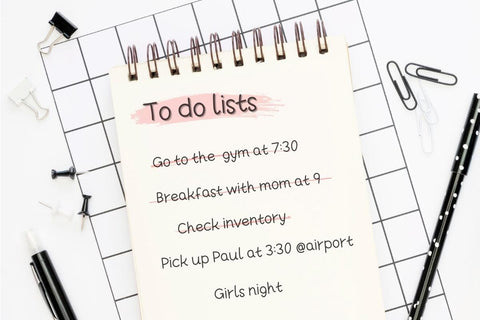 To do lists
Go to the gym at 7:30
Breakfast with mom at 9
Check inventory
Pick up Paul at 3:30 @airport
Girls night